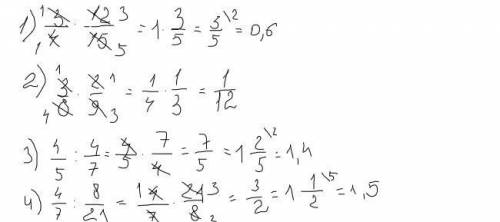 1) ¹3/4₁ · 12³/15₅ = 1 · 3/5 = 3/5 \2 = 0,6
2) ¹3/8₄ · 2¹/9₃ = 1/4 · 1/3 = 1/12
3) 4/5 : 4/7 = 4/5 · 7/4 = 7/5 = 1 2/5 \2 = 1,4
4) 4/7 : 8/21 = ¹4/7 · 21³/8₂ = 3/2 = 1 1/2 \5 = 1,5